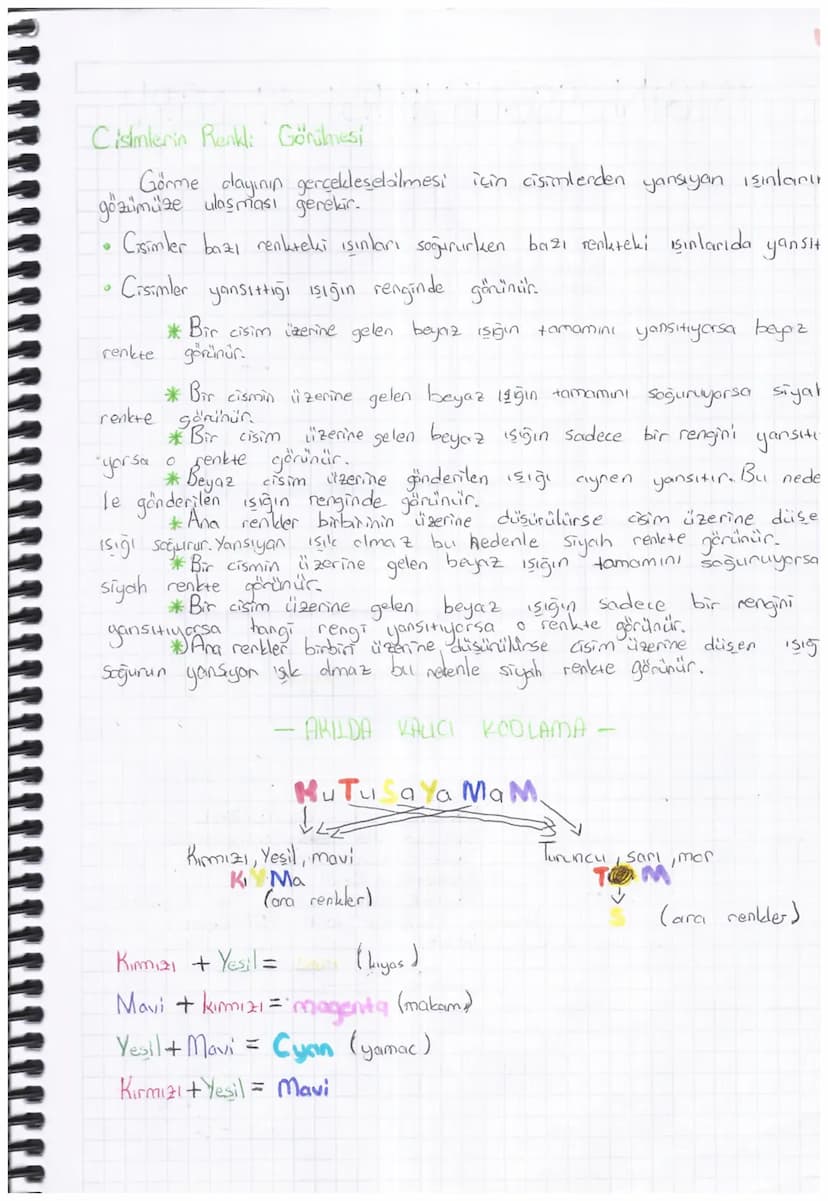 Cisimlerin Renkli Görülmesi
Görme olayının gerçekleşebilmesi için cisimlerden yansıyan ışınların
gözümüze ulaşması gerekir.
• Cisimler bazı renkteki ışınları soğururken bazı renkteki ışınlarıda yansıt
• Cisimler yansıttığı ışığın renginde görünür.
* Bir cisim üzerine gelen beyaz ışığın tamamını yansıtıyorsa beyaz
renkte görünür.
* Bir cismin üzerine gelen beyaz ışığın tamamını soğuruyorsa siyah
renkte görünür.
* Bir cisim üzerine gelen beyaz ışığın sadece bir rengini yansıtı
yorsa o renkte görünür.
* Beyaz cisim üzerine gönderilen ışığı aynen yansıtır. Bu nede
le gönderilen ışığın renginde görünür.
* Ana renkler birbirinin üzerine düşürülürse cisim üzerine düşe
ışığı soğurur. Yansıyan ışık olmaz bu nedenle siyah renkte görünür.
* Bir cismin üzerine gelen beyaz ışığın tamamını soğuruyorsa
siyah renkte görünür.
* Bir cisim üzerine gelen beyaz ışığın sadece bir rengini
yansıtıyorsa hangi rengi yansıtıyorsa o renkte görünür.
* Ana renkler birbiri üzerine düşürülürse cisim üzerine düşen ışığ
soğurun yansıyan ışık olmaz bu nedenle siyah renkte görünür.
— AKILDA KALICI KODLAMA —
KuTuSaYaMaM
Kırmızı, Yeşil, mavi Turuncu, sarı, mor
KIYMa TOM
(ana renkler)
S (ara renkler)
Kırmızı + Yeşil = sarı (kıyas)
Mavi + kırmızı = magenta (makam)
Yeşil + Mavi = Cyan (yamac)
Kırmızı + Yeşil = Mavi